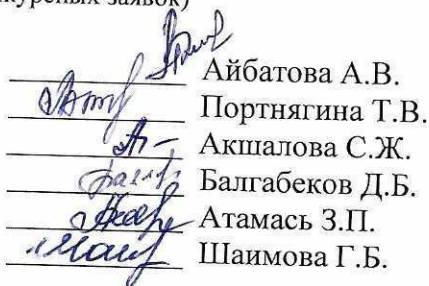 заявок)
Айбатова А.В.
Портнягина Т.В.
Акшалова С.Ж.
Балгабеков Д.Б.
Атамась З.П.
Шаимова Г.Б.